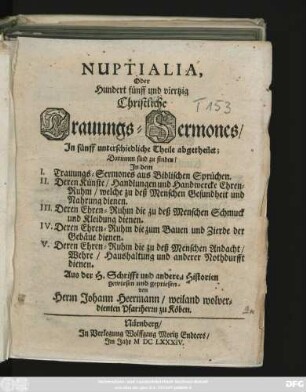 NUPTIALIA,
Oder
Hundert fünff und viertzig
Christliche
T 153
Trauungs-Sermones/
In fünff unterschiedliche Theile abgetheilet;
Darinnen sind zu finden/
In dem
I. Trauungs-Sermones aus Biblischen Sprüchen.
II. Deren Künste/ Handlungen und Handwercke Ehren-
Ruhm/ welche zu deß Menschen Gesundheit und
Nahrung dienen.
III. Deren Ehren-Ruhm die zu deß Menschen Schmuck
und Kleidung dienen.
IV. Deren Ehren-Ruhm die zum Bauen und Zierde der
Gebäue dienen.
V. Deren Ehren-Ruhm die zu deß Menschen Andacht/
Wehre/ Haushaltung und anderer Nothdurfft
dienen.
Aus der H. Schrifft und andern Historien
gewiesen und gepriesen.
von
Herrn Johann Heermann/ weiland wolver-
dienten Pfarrherrn zu Köben.
Nürnberg/
In Verlegung Wolffgang Moritz Endters/
Im Jahr M DC LXXXIV.